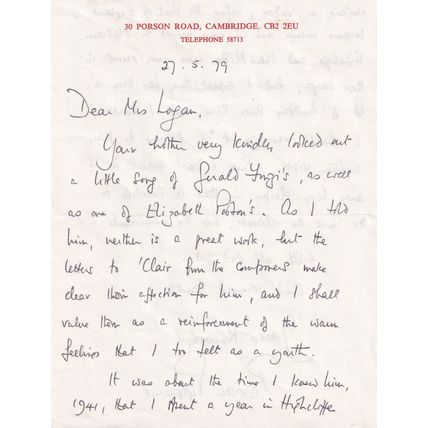 30 PORSON ROAD, CAMBRIDGE. CB2 2EU
TELEPHONE 58713
27. 5. 79
Dear Mrs Logan,
Your brother very kindly looked out
a little song of Gerald Finzi's, as well
as one of Elizabeth Poston's. As I told
him, neither is a great work, but the
letters to 'Clair from the composers make
clear their affection for him, and I shall
value them as a reinforcement of the warm
feelings that I too felt as a youth.
It was about the time I knew him,
1941, that I spent a year in Highcliffe